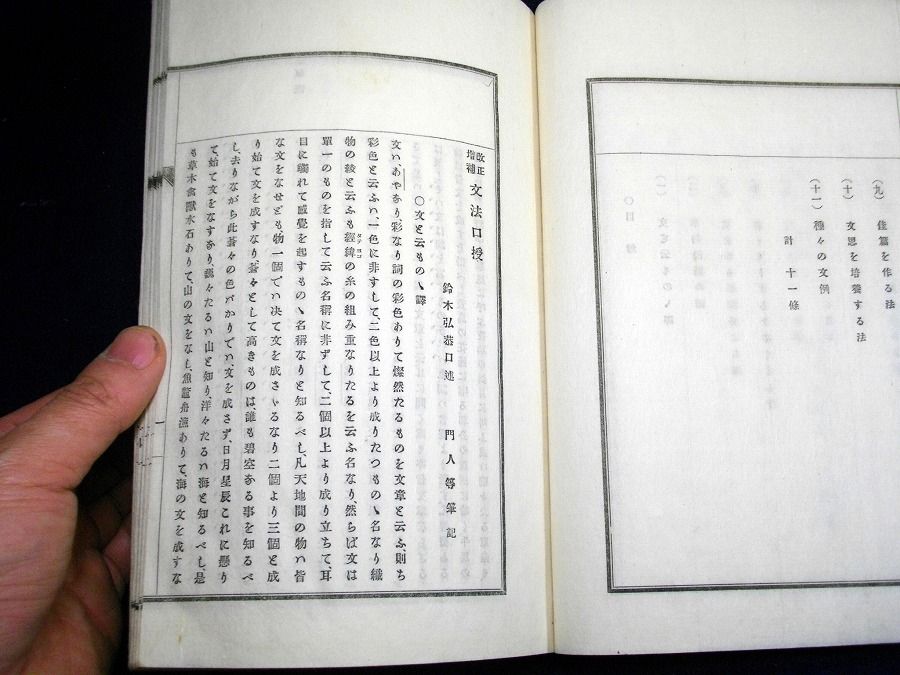 (九) 佳篇を作る法
(十) 文思を培養する法
(十一) 種々の文例
計 十一條
改正増補 文法口授
鈴木弘恭口述 門人等筆記
○文と云ものヽ譯
文ハ、あやなり、彩なり詞の彩色ありて燦然たるものを文章と云ふ、則ち
彩色と云ふハ、一色に非すして、二色以上より成りたつものヽ名なり織
物の綾と云ふも經緯タテヨコの糸の組み重なりたるを云ふ名なり、然らば文は
單一のものを指して云ふ名稱に非ずして、二個以上より成り立ちて、耳
目に觸れて感覺を起すものヽ名稱なりと知るべし、凡天地間の物ハ皆
な文をなせども物一個でハ决て文を成さヾるなり二個より三個と成
り始て文を成すなり、蒼々として高きものは、誰も碧空なる事を知るべ
し、去りながら此蒼々の色ばかりでハ、文を成さず、日月星辰これに懸り
て、始て文をなすなり、巍々たるハ山と知り、洋々たるハ海と知るべし、是
も草木禽獸水石ありて、山の文をなし、魚龍舟漁ありて、海の文を成すな